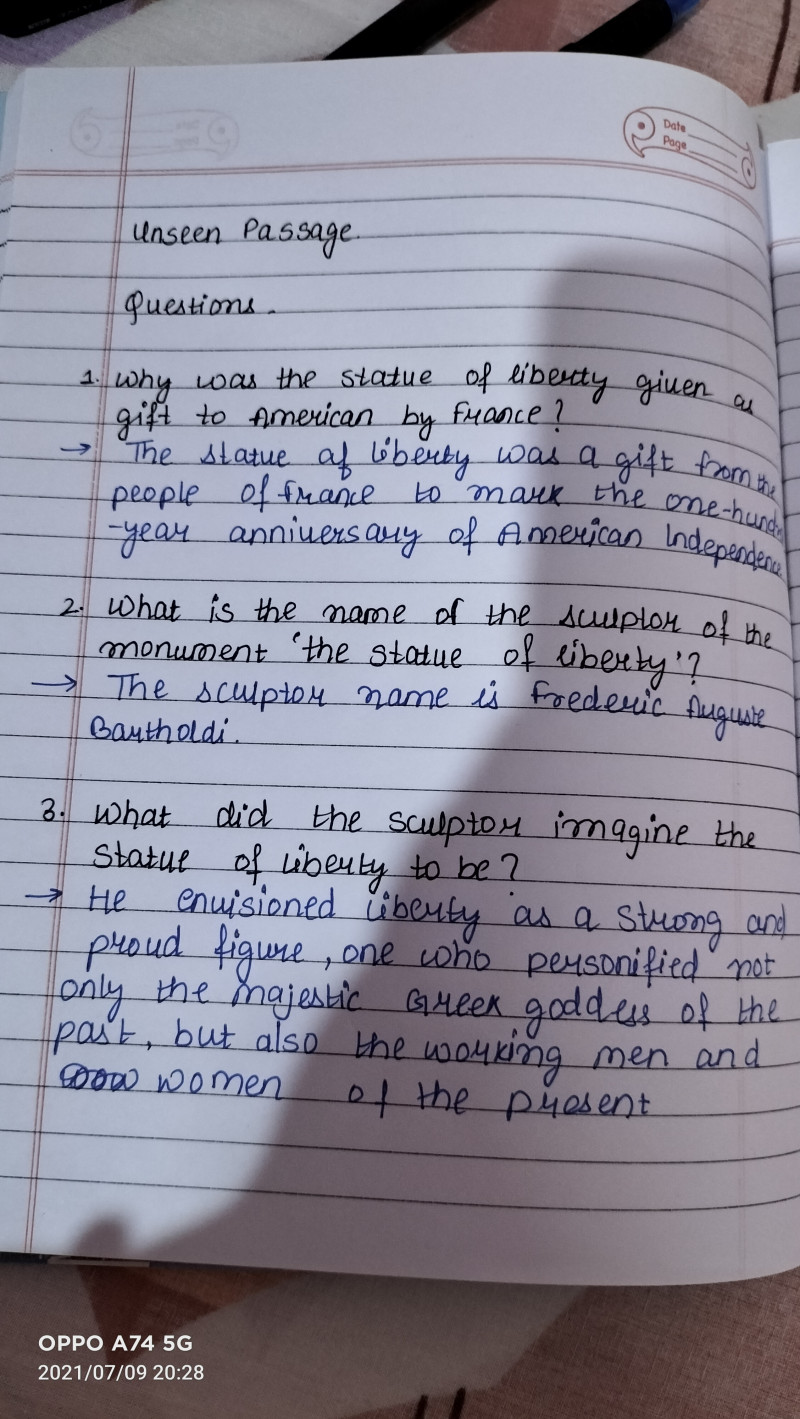 Date
Page
Unseen Passage.
Questions.
1. Why was the statue of liberty given as
gift to American by France?
→ The statue of liberty was a gift from the
people of france to mark the one-hund
-year anniversary of American Independence
2. What is the name of the sculptor of the
monument 'the statue of liberty'?
→ The sculptor name is Frederic Auguste
Bartholdi.
3. What did the sculptor imagine the
Statue of liberty to be?
→ He envisioned liberty as a strong and
proud figure, one who personified not
only the majestic Greek goddess of the
past, but also the working men and
women of the present
OPPO A74 5G
2021/07/09 20:28